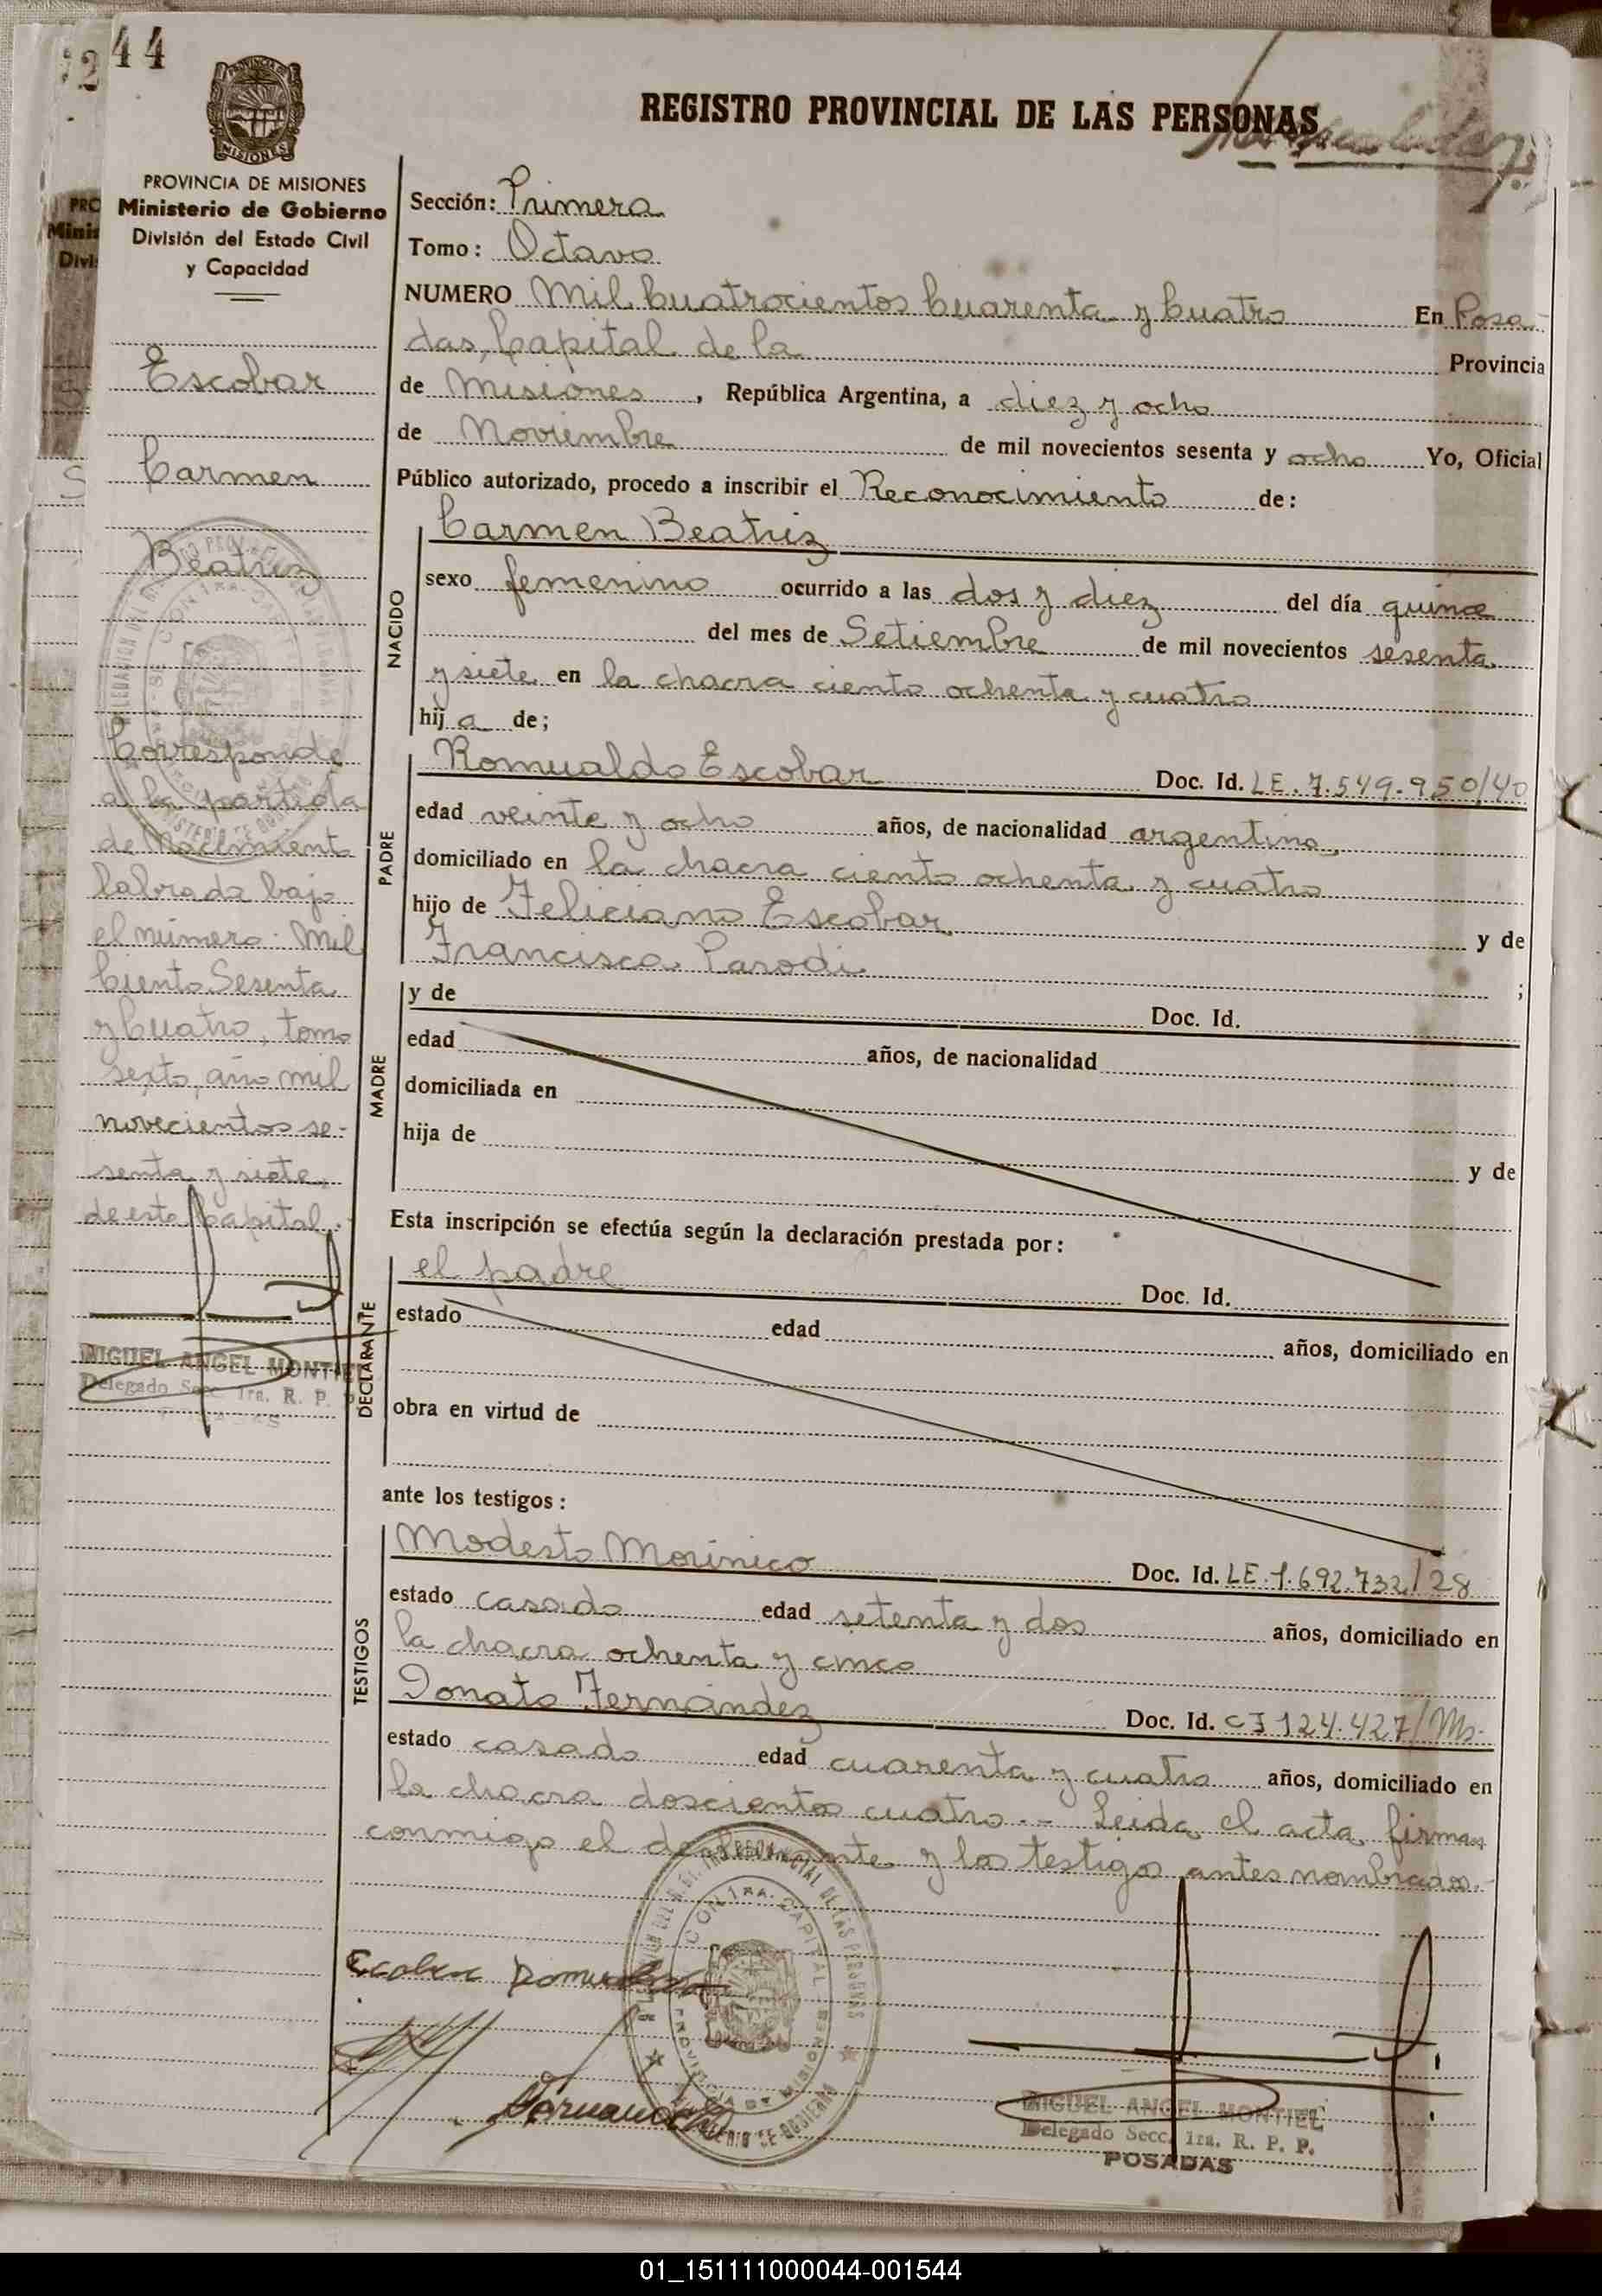 44
REGISTRO PROVINCIAL DE LAS PERSONAS
PROVINCIA DE MISIONES
Ministerio de Gobierno
División del Estado Civil
y Capacidad
Escobar
Carmen
Beatriz
Corresponde
a la partida
de Nacimiento
labrada bajo
el número: Mil
Ciento Sesenta
y Cuatro, tomo
sexto, año mil
novecientos se-
senta y siete,
de esta Capital.-
MIGUEL ANGEL MONTIEL
Delegado Secc. 1ra. R. P. P.
POSADAS
Sección: Primera
Tomo: Octavo
NUMERO Mil Cuatrocientos Cuarenta y Cuatro En Posa-
das, Capital de la Provincia
de Misiones, República Argentina, a diez y ocho
de Noviembre de mil novecientos sesenta y ocho Yo, Oficial
Público autorizado, procedo a inscribir el Reconocimiento de:
NACIDO
Carmen Beatriz
sexo femenino ocurrido a las dos y diez del día quince
del mes de Setiembre de mil novecientos sesenta
y siete en la chacra ciento ochenta y cuatro
hija de;
PADRE
Romualdo Escobar Doc. Id. LE. 7.549.950/40
edad veinte y ocho años, de nacionalidad argentino,
domiciliado en la chacra ciento ochenta y cuatro
hijo de Feliciano Escobar y de
Francisca Parodi ;
MADRE
y de Doc. Id.
edad años, de nacionalidad
domiciliada en
hija de y de
Esta inscripción se efectúa según la declaración prestada por:
DECLARANTE
el padre Doc. Id.
estado edad años, domiciliado en
obra en virtud de
ante los testigos:
TESTIGOS
Modesto Morinico Doc. Id. LE.1.692.732/28
estado casado edad setenta y dos años, domiciliado en
la chacra ochenta y cinco
Donato Fernández Doc. Id. CI 124.427/Ms.
estado casado edad cuarenta y cuatro años, domiciliado en
la chacra doscientos cuatro.- Leida el acta firman
conmigo el declarante y los testigos antes nombrados.-
Romualdo
Fernandez
MIGUEL ANGEL MONTIEL
Delegado Secc. 1ra. R. P. P.
POSADAS
01_151111000044-001544